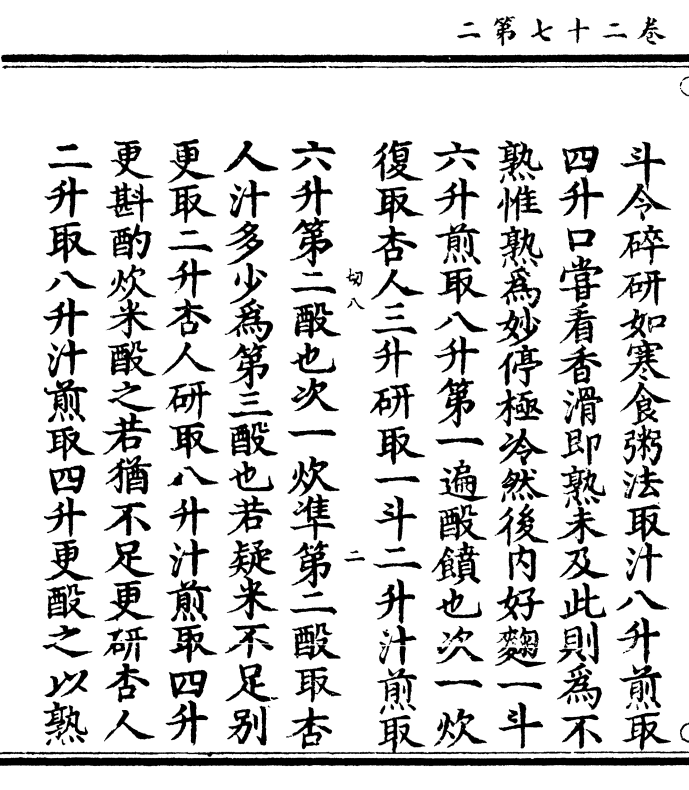 卷二十七第二
斗令碎研如寒食粥法取汁八升煎取
四升口嘗看香滑即熟未及此則爲不
熟惟熟爲妙停極冷然後内好麴一斗
六升煎取八升第一遍酘饙也次一炊
復取杏人三升研取一斗二升汁煎取
切八
二
六升第二酘也次一炊準第二酘取杏
人汁多少爲第三酘也若疑米不足別
更取二升杏人研取八升汁煎取四升
更斟酌炊米酘之若猶不足更研杏人
二升取八升汁煎取四升更酘之以熟